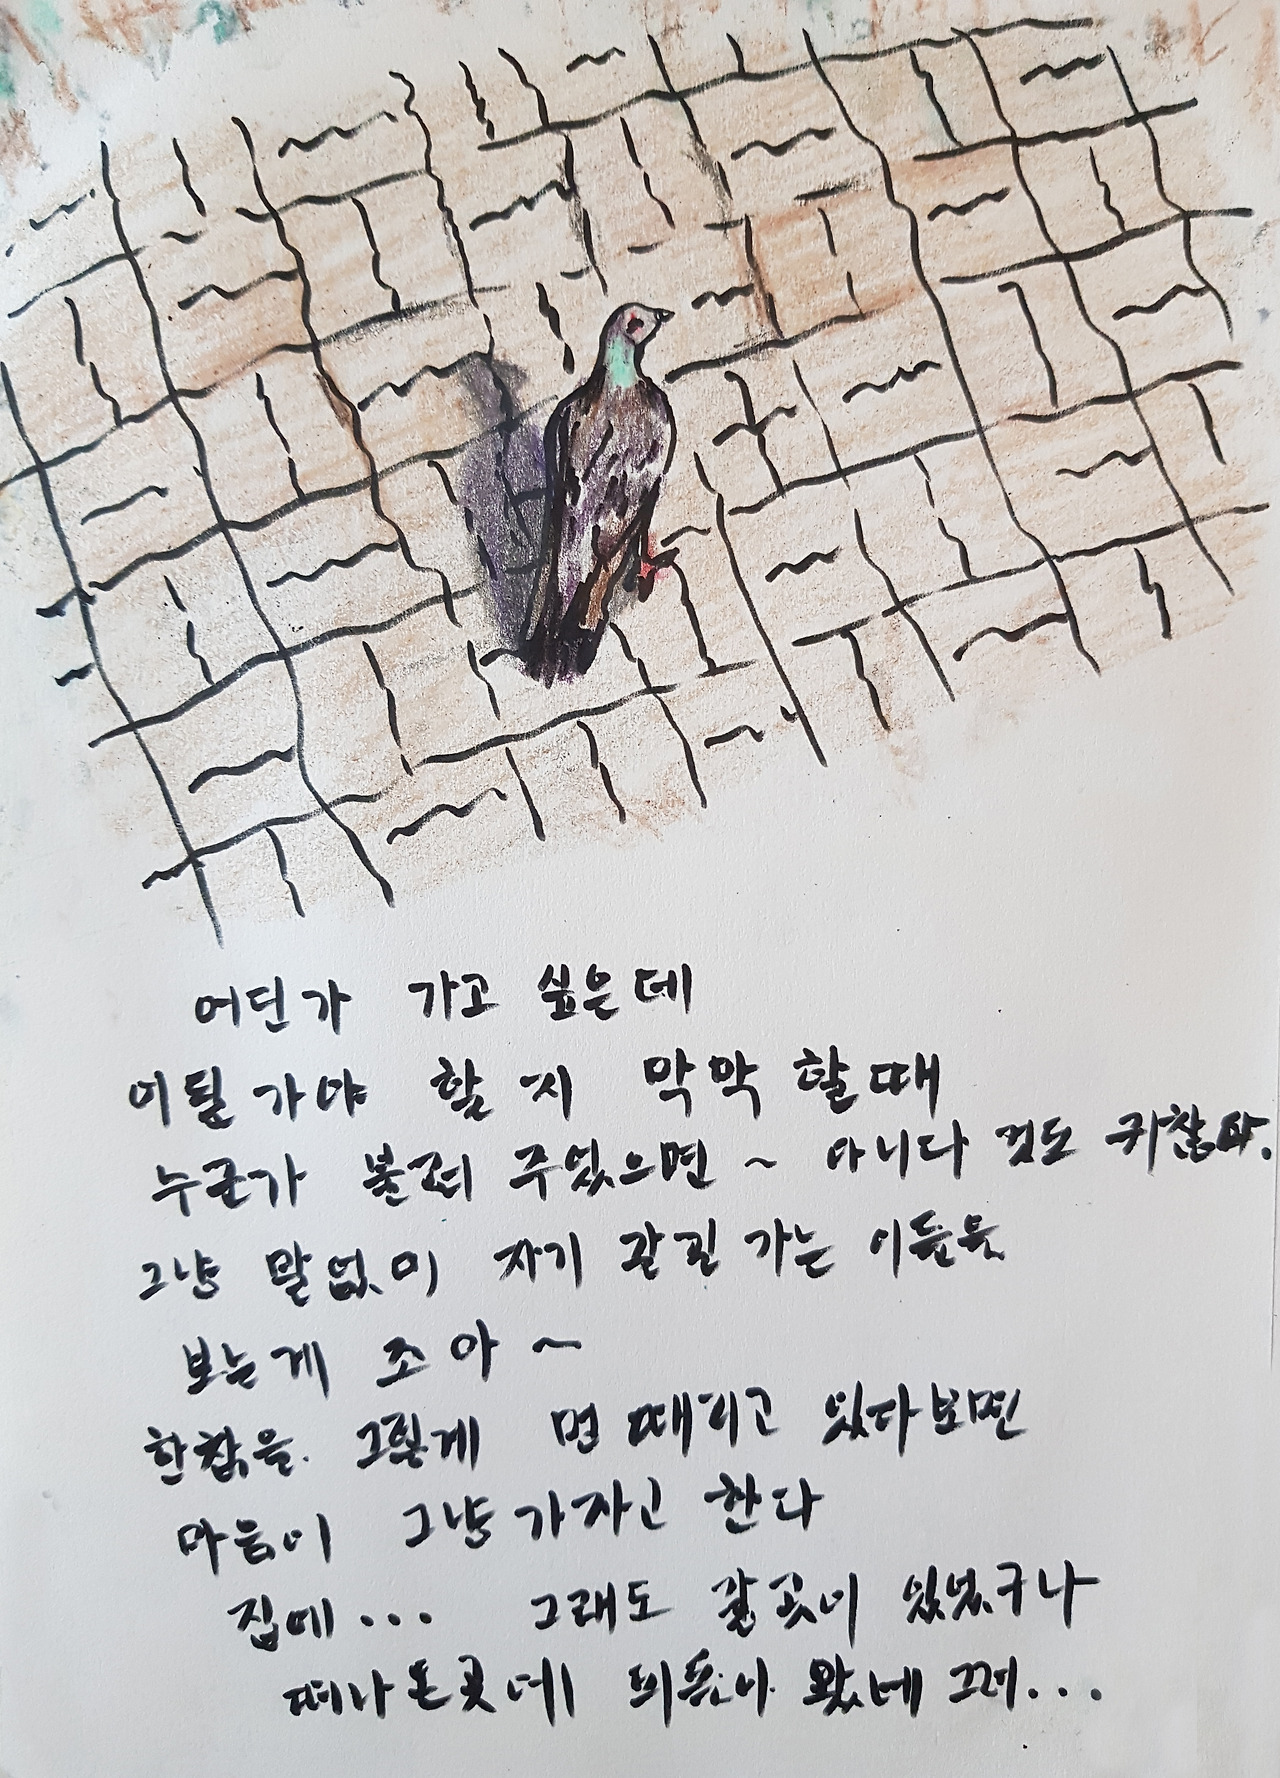 어딘가 가고 싶은데
어딜 가야 할 지 막막 할때
누군가 불러 주었으면 ~ 아니다 것도 귀찮다.
그냥 말없이 자기 갈길 가는 이들을
보는게 조아 ~
한참을 그렇게 멍 때리고 있다보면
마음이 그냥 가자고 한다
집에... 그래도 갈곳이 있었구나
떠나온곳에 되돌아 왔네 그려...